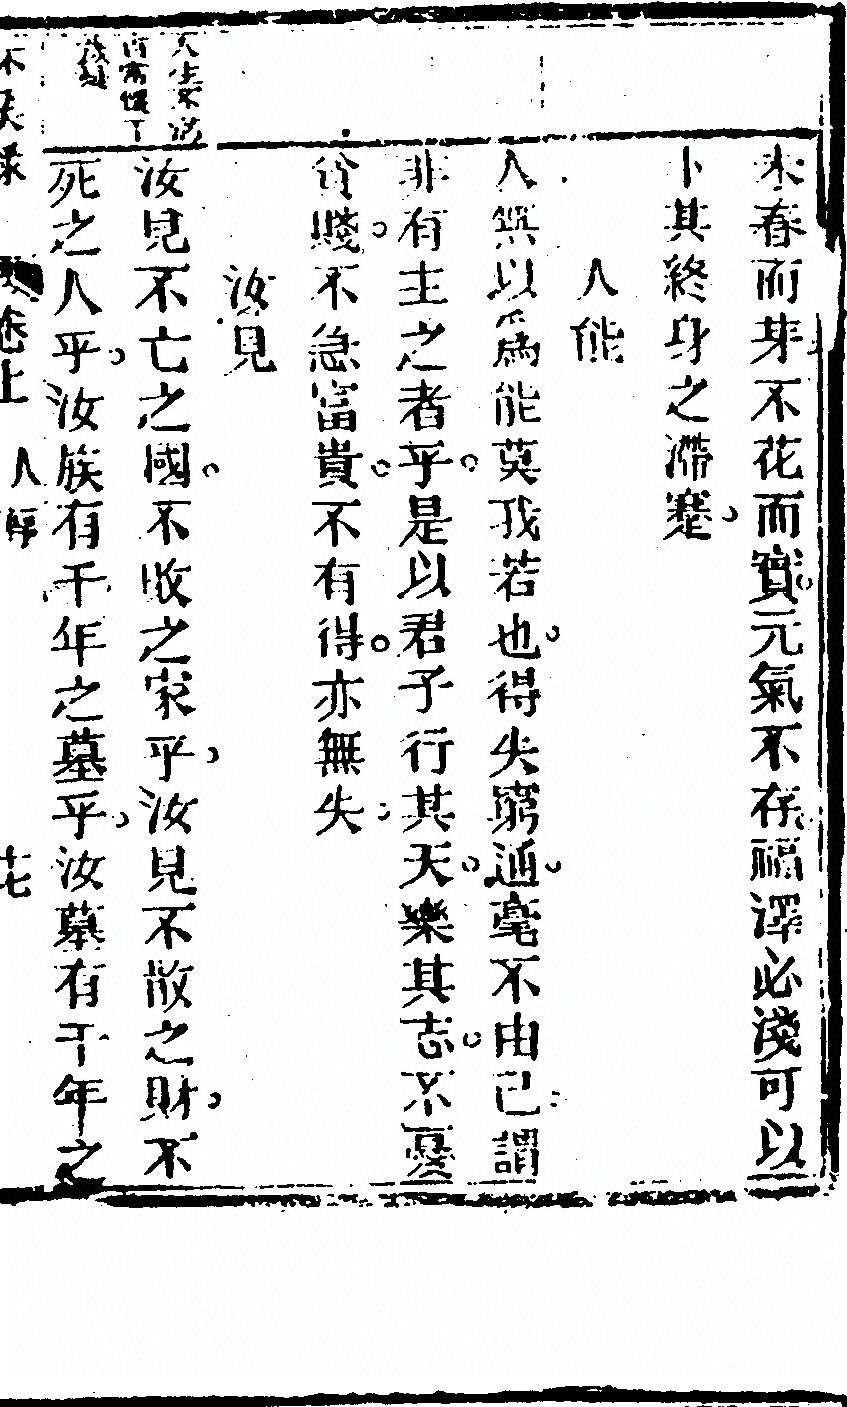 未春而芽不花而實元氣不存福澤必淺可以
卜其終身之滯蹇
人能
人無以為能莫我若也得失窮通毫不由己謂
非有主之者乎是以君子行其天樂其志不憂
貧賤不急富貴不有得亦無失
汝見
汝見不亡之國不收之家乎汝見不散之財不
死之人乎汝族有千年之墓乎汝墓有千年之
卷上
人
十七